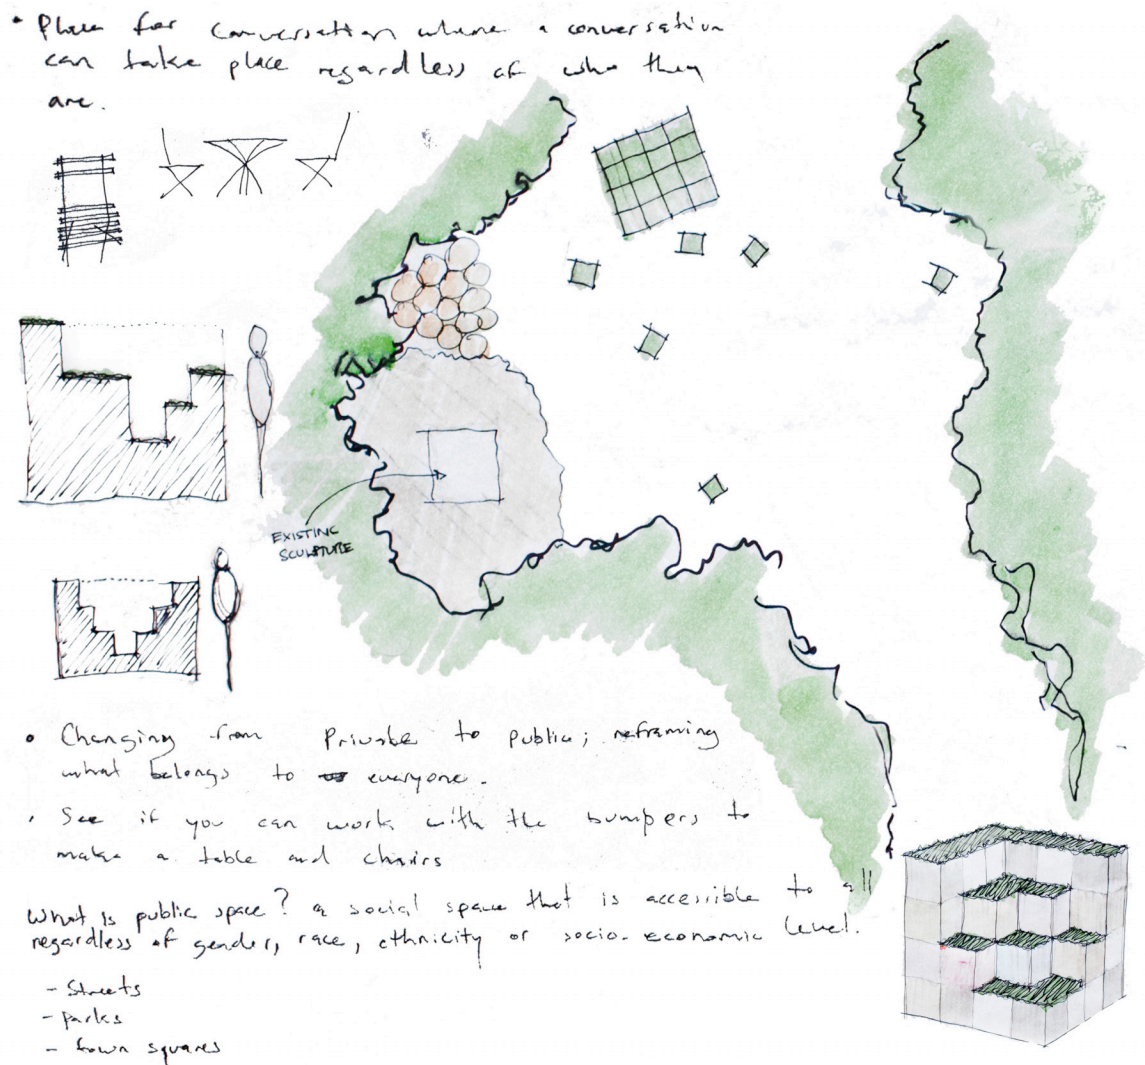 • Place for conversation where a conversation
can take place regardless of who they
are.
EXISTING
SCULPTURE
• Changing from Private to public; reframing
what belongs to everyone.
• See if you can work with the bumpers to
make a table and chairs
What is public space? a social space that is accessible to all
regardless of gender, race, ethnicity or socio-economic level.
- Streets
- parks
- town squares